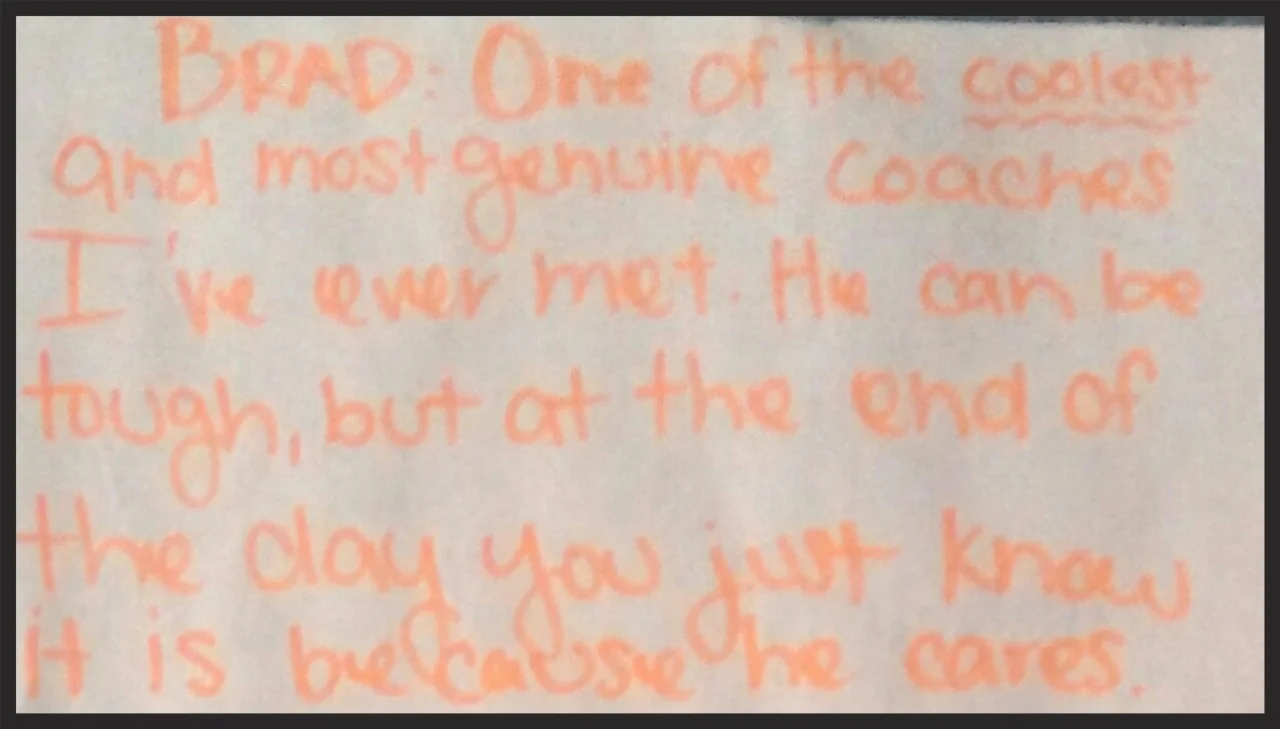 BRAD: One of the coolest
and most genuine coaches
I've ever met. He can be
tough, but at the end of
the day you just know
it is because he cares.